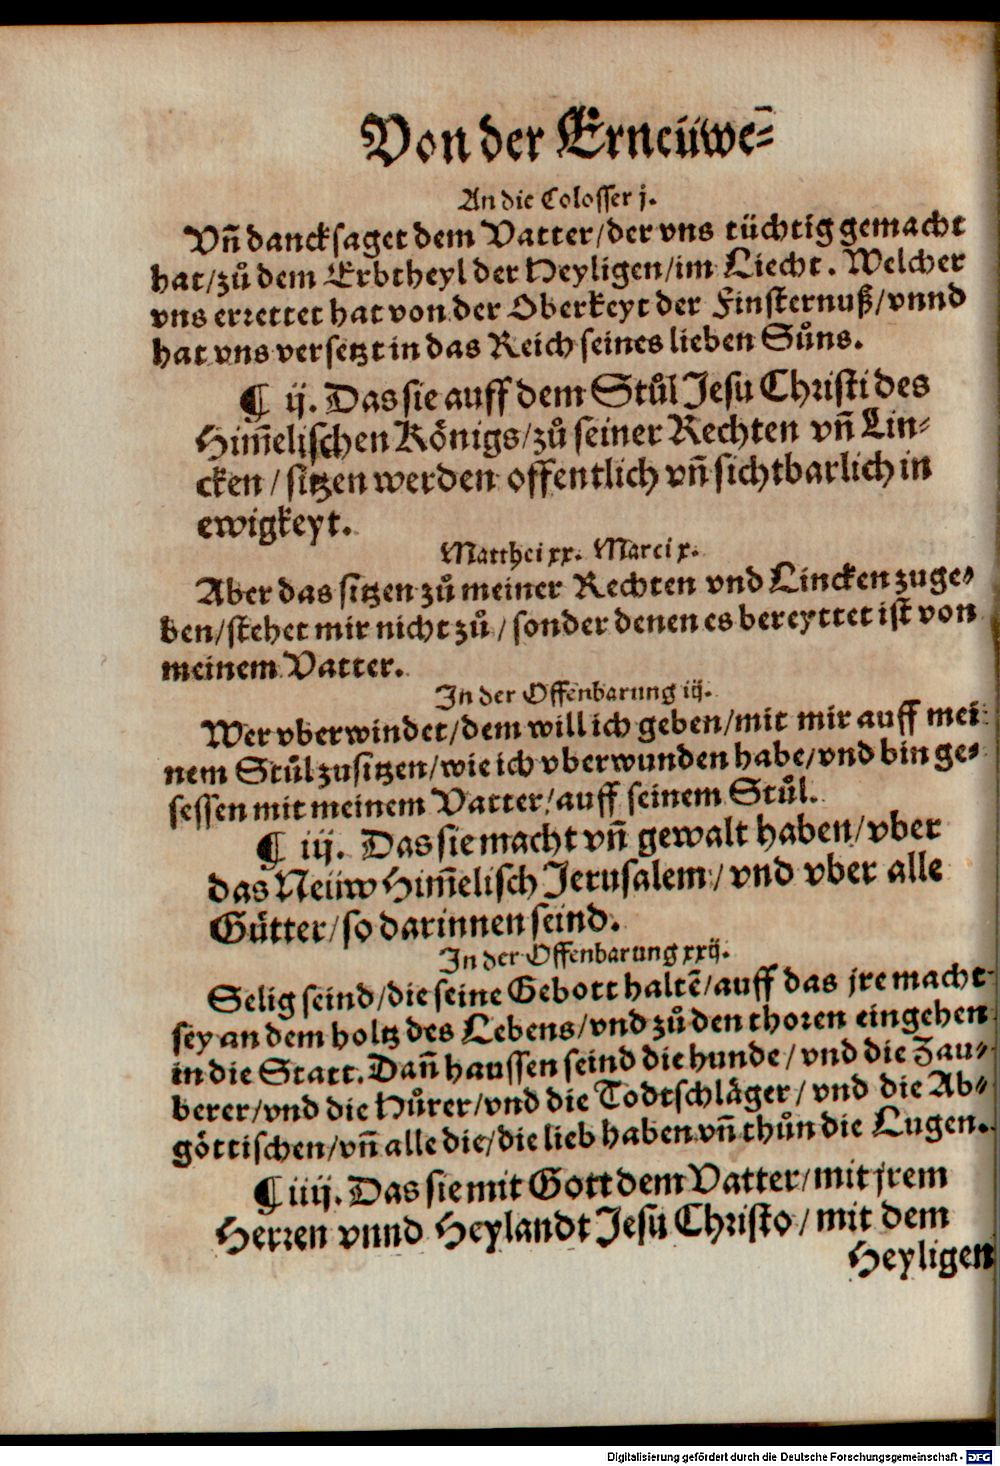 Von der Erneüwe-
An die Colosser j.
Vñ dancksaget dem Vatter/der vns tüchtig gemacht
hat/zů dem Erbtheyl der Heyligen/im Liecht. Welcher
vns errettet hat von der Oberkeyt der Finsternuß/vnnd
hat vns versetzt in das Reich seines lieben Sůns.
¶ ij. Das sie auff dem Stůl Jesu Christi des
Him̃elischen Königs/zů seiner Rechten vñ Lin-
cken/sitzen werden offentlich vñ sichtbarlich in
ewigkeyt.
Matthei xx. Marci x.
Aber das sitzen zů meiner Rechten vnd Lincken zuge-
ben/stehet mir nicht zů/sonder denen es bereyttet ist von
meinem Vatter.
In der Offenbarung iij.
Wer vberwindet/dem will ich geben/mit mir auff mei-
nem Stůl zusitzen/wie ich vberwunden habe/vnd bin ge-
sessen mit meinem Vatter/auff seinem Stůl.
¶ iij. Das sie macht vñ gewalt haben/vber
das Neüw Him̃elisch Jerusalem/vnd vber alle
Gütter/so darinnen seind.
In der Offenbarung xxij.
Selig seind/die seine Gebott haltẽ/auff das jre macht
sey an dem holtz des Lebens/vnd zů den thoren eingehen
in die Statt. Dañ haussen seind die hunde/vnd die Zau-
berer/vnd die Hůrer/vnd die Todtschläger/vnd die Ab-
göttischen/vñ alle die/die lieb haben vñ thůn die Lugen.
¶ iiij. Das sie mit Gott dem Vatter/mit jrem
Herren vnnd Heylandt Jesu Christo/mit dem
Heyligen
Digitalisierung gefördert durch die Deutsche Forschungsgemeinschaft - DFG